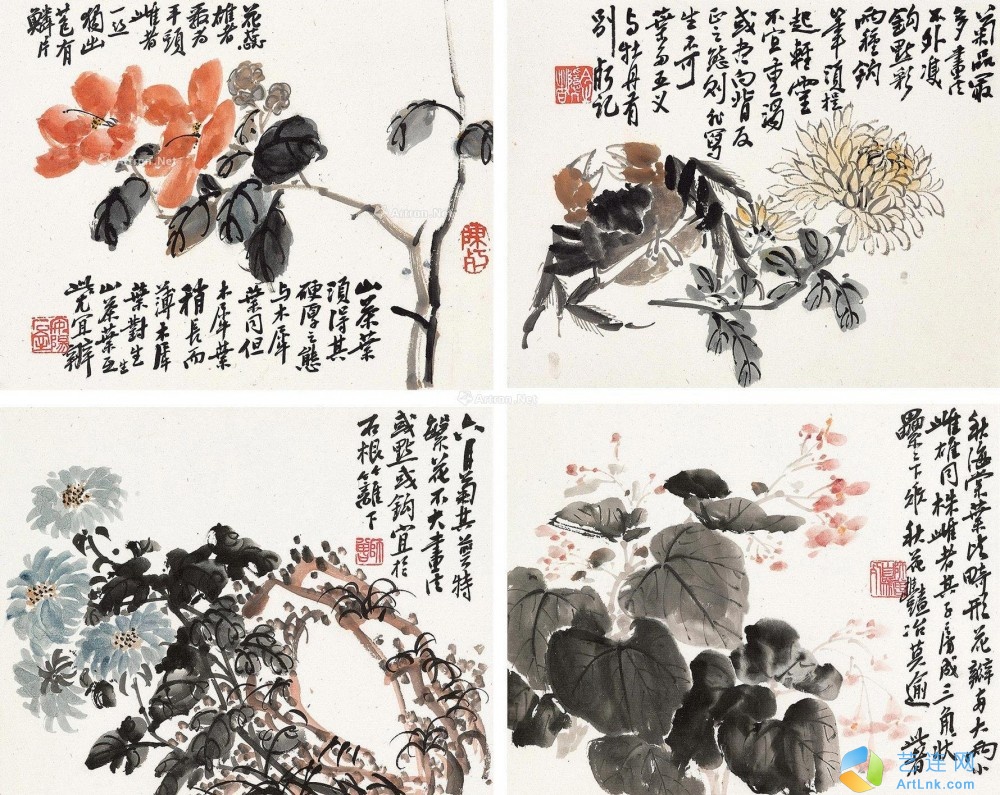 花蕊
雄者
最为
平頭
雌者
一点
獨出
苞有
鱗片
山茶葉
須得其
硬厚之態
与木犀
葉同但
木犀葉
稍長而
薄木犀
葉對生
山茶葉互生
此尤宜辨
菊品最
多畫法
不外
鈎點彩
兩種鈎
筆須提
起輕靈
不宜重濁
向背反
正之態則非寫
生不可
葉多五叉
与牡丹有
別 記
六月菊其莖特
繁花不大畫法
或點或鈎宜於
石根籬下
秋海棠葉皆畸形花瓣兩大兩小
雌雄同株雌者其子房成三角狀
纍纍下垂秋花豔冶莫逾
此者
Artron.Net
Artron.Net
Artron.Net
艺连网
ArtLnk.com